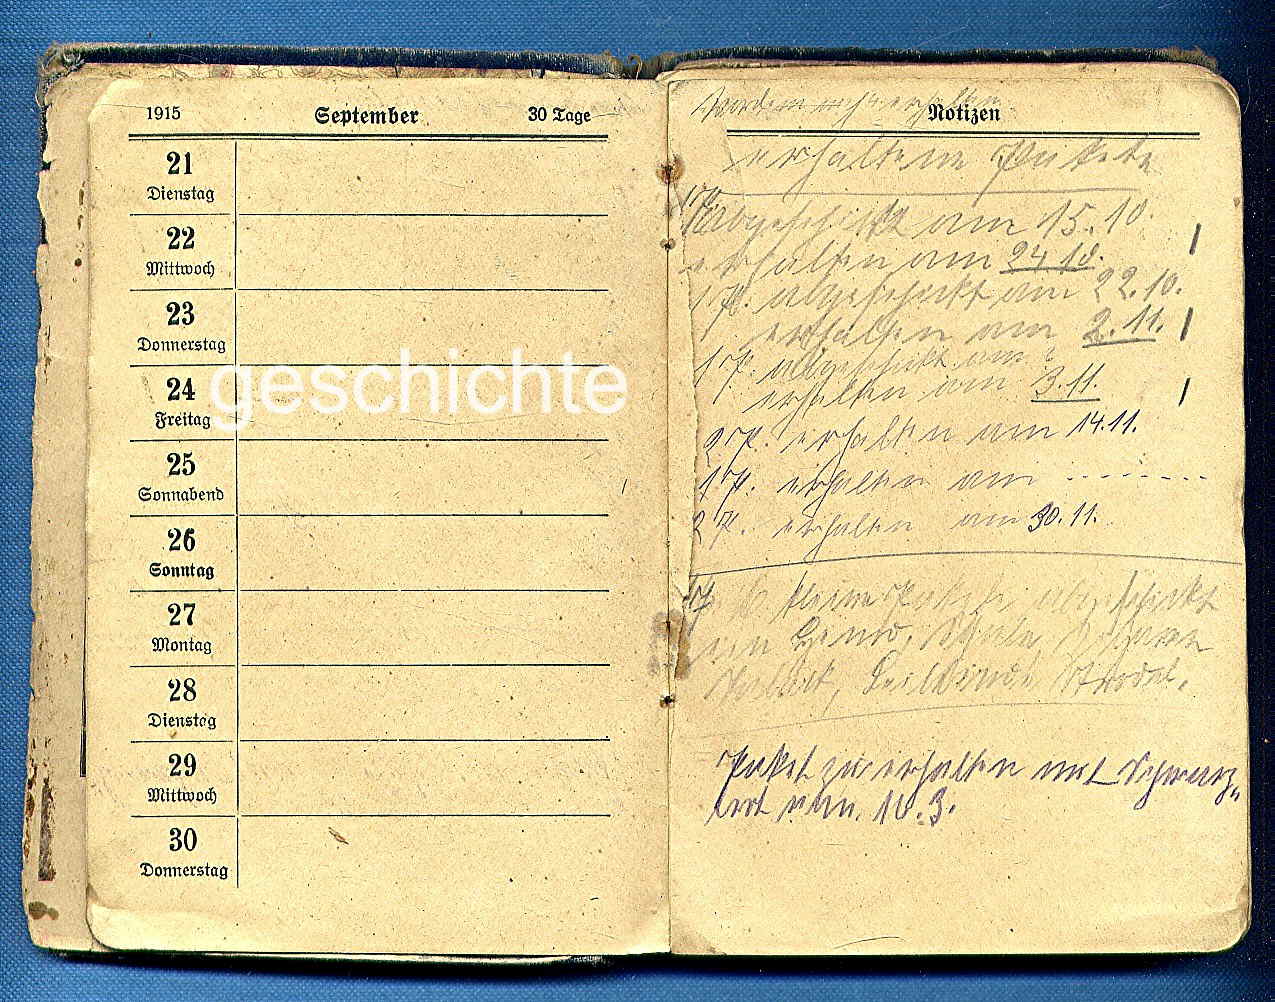 1915 September 30 Tage
21
Dienstag
22
Mittwoch
23
Donnerstag
24
Freitag
25
Sonnabend
26
Sonntag
27
Montag
28
Dienstag
29
Mittwoch
30
Donnerstag
geschichte
Notizen
erhaltene Pakete
1 P. abgeschickt am 15.10.
erhalten am 24.10.
1 P. abgeschickt am 22.10.
erhalten am 2.11.
1 P. abgeschickt am ?
erhalten am 3.11.
2 P. erhalten am 14.11.
1 P. erhalten am - - - - - - -
2 P. erhalten am 30.11.
6 kleine Pakete abgeschickt
an
Paket zu erhalten mit Schwarz„
brot vom 10.3.